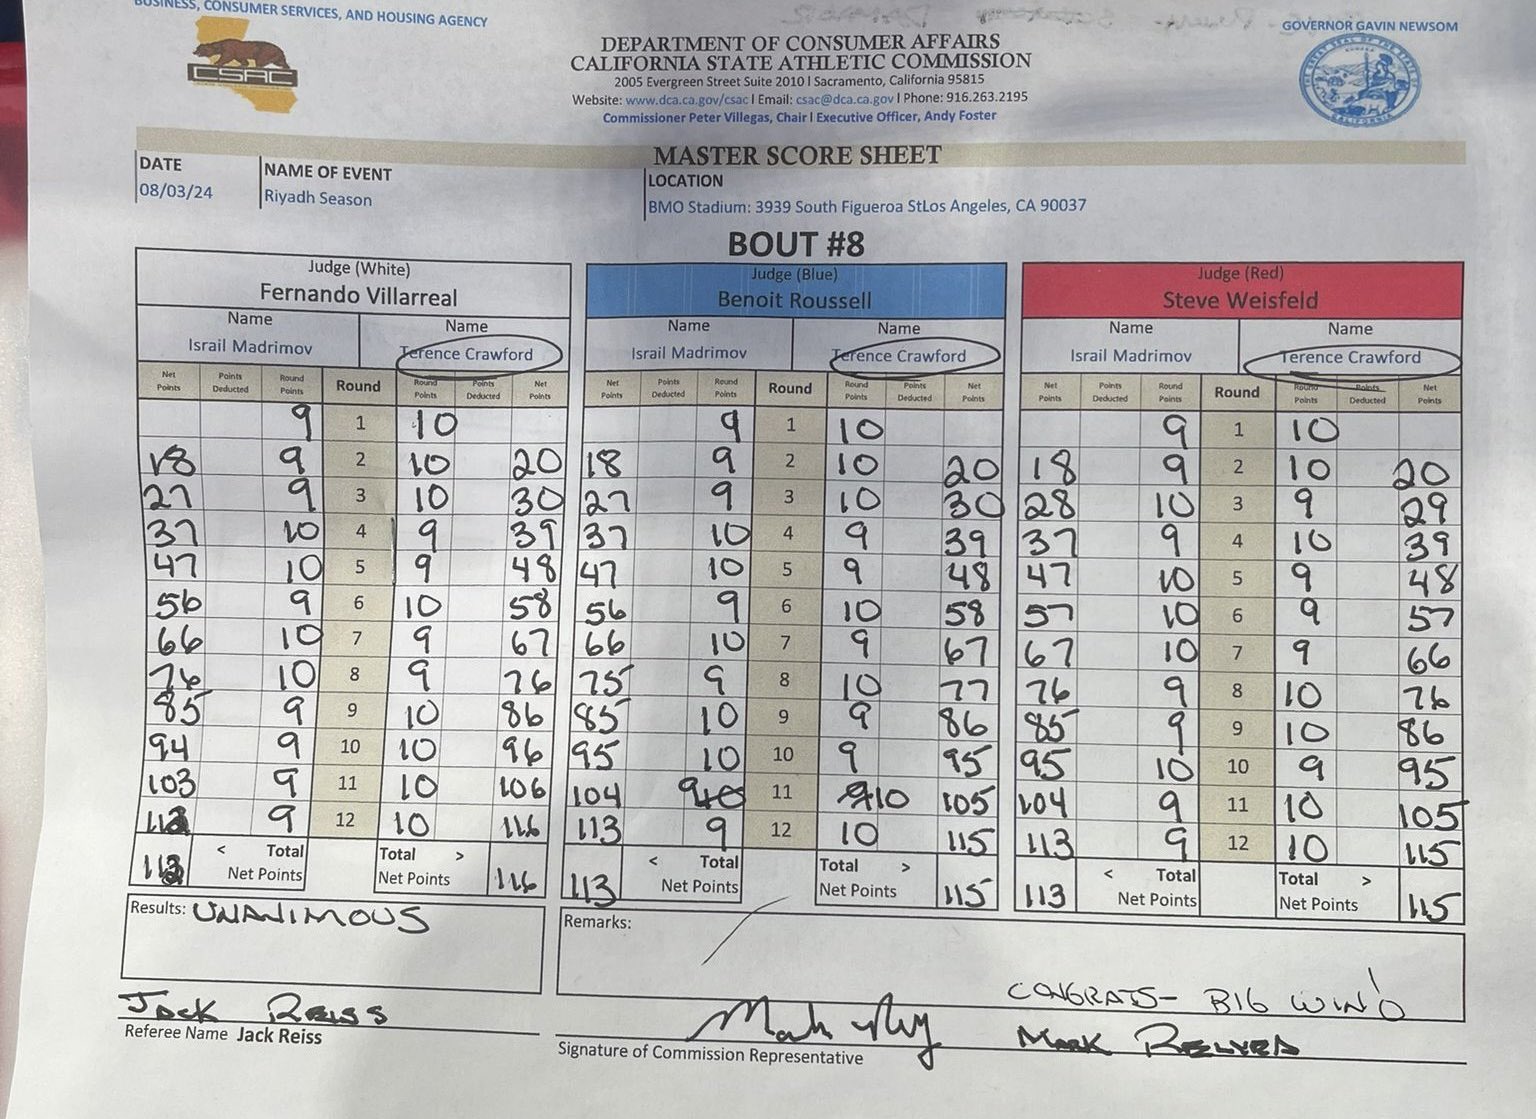 BUSINESS, CONSUMER SERVICES, AND HOUSING AGENCY
GOVERNOR GAVIN NEWSOM
CSAC
DEPARTMENT OF CONSUMER AFFAIRS
CALIFORNIA STATE ATHLETIC COMMISSION
2005 Evergreen Street Suite 2010 I Sacramento, California 95815
Website: www.dca.ca.gov/csac I Email: csac@dca.ca.gov I Phone: 916.263.2195
Commissioner Peter Villegas, Chair I Executive Officer, Andy Foster
MASTER SCORE SHEET
DATE NAME OF EVENT LOCATION
08/03/24 Riyadh Season BMO Stadium: 3939 South Figueroa StLos Angeles, CA 90037
BOUT #8
Judge (White) Judge (Blue) Judge (Red)
Fernando Villarreal Benoit Roussell Steve Weisfeld
Name Name Name Name Name Name
Israil Madrimov Terence Crawford Israil Madrimov Terence Crawford Israil Madrimov Terence Crawford
Net Points Points Deducted Round Points Round Round Points Points Deducted Net Points Net Points Points Deducted Round Points Round Round Points Points Deducted Net Points Net Points Points Deducted Round Points Round Round Points Points Deducted Net Points
9 1 10 9 1 10 9 1 10
18 9 2 10 20 18 9 2 10 20 18 9 2 10 20
27 9 3 10 30 27 9 3 10 30 28 10 3 9 29
37 10 4 9 39 37 10 4 9 39 37 9 4 10 39
47 10 5 9 48 47 10 5 9 48 47 10 5 9 48
56 9 6 10 58 56 9 6 10 58 57 10 6 9 57
66 10 7 9 67 66 10 7 9 67 67 10 7 9 66
76 10 8 9 76 75 9 8 10 77 76 9 8 10 76
85 9 9 10 86 85 10 9 9 86 85 9 9 10 86
94 9 10 10 96 95 10 10 9 95 95 10 10 9 95
103 9 11 10 106 104 9 11 10 105 104 9 11 10 105
112 9 12 10 116 113 9 12 10 115 113 9 12 10 115
< Total Total > < Total Total > < Total Total >
Net Points Net Points 116 113 Net Points Net Points 115 113 Net Points Net Points 115
Results: UNANIMOUS Remarks:
CONGRATS- BIG WIN!
Jack Reiss
Mark
Referee Name Jack Reiss Signature of Commission Representative